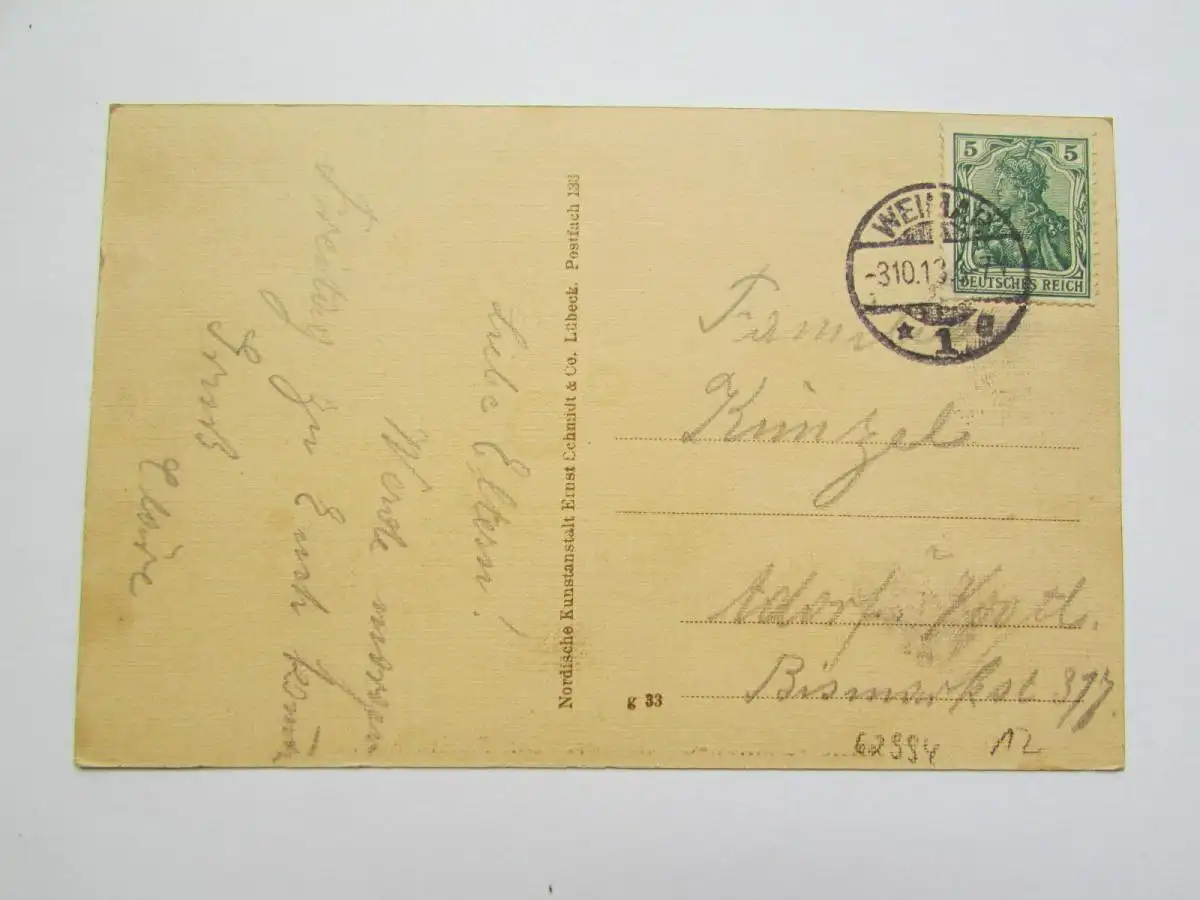 Liebe Eltern!
Werde morgen
Freitag zu Euch komm
Gruß
Nordische Kunstanstalt Ernst Schmidt & Co. Lübeck. Postfach 133
g 33
5 5
DEUTSCHES REICH
WEIMAR
-310.13
* 1 a
Familie
Künzel
Adorf i. Vogtl.
Bismarkst 397.
62994 12